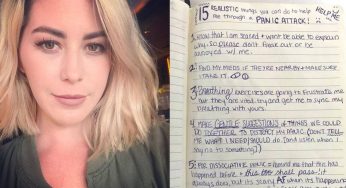 15 REALISTIC things you can do to help
me through a PANIC ATTACK!
HELP ME
1. Know that I am scared + won't be able to explain
why, so please don't freak out or be
annoyed w/ me.
2. Find my meds if they're nearby + make sure
I take it.
3. Breathing exercises are going to frustrate me
but they are vital, try and get me to sync my
breathing with yours.
4. Make GENTLE SUGGESTIONS of things we could
do TOGETHER to distract my panic. (DON'T TELL
ME WHAT I NEED/SHOULD DO (and listen when I
say no to something))
5. For DISSOCIATIVE PANIC - remind me that this has
happened before + this too shall pass. It
always does, but it's scary AF when it's happening